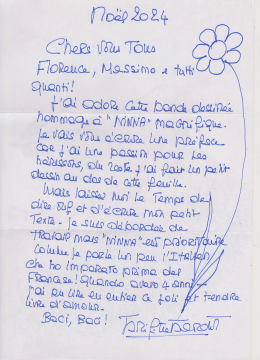 Noël 2024
Chers vous Tous
Florence, Massimo e tutti
quanti!
J'ai adoré cette bande dessinée
hommage à "NINNA" magnifique.
Je vais vous écrire une préface
car j'ai une passion pour les
hérissons, du reste j'ai fait un petit
dessin au dos de cette feuille.
Mais laissez moi le Temps de
dire ouf et d'écrire mon petit
Texte. Je suis débordée de
travail mais "NINNA" est prioritaire
comme je parle un peu l'Italien
che ho imparato prima del
Francese! Quando avevo 4 anni -
j'ai pu lire en entier ce joli et tendre
livre d'amour.
Baci, Baci!